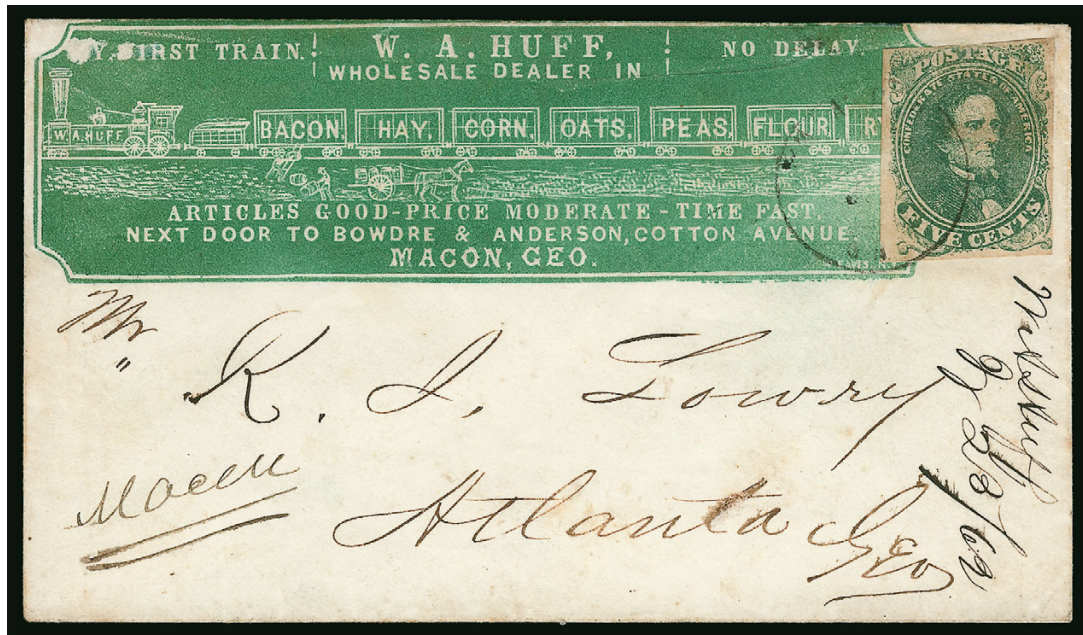 BY FIRST TRAIN.
W. A. HUFF,
NO DELAY.
WHOLESALE DEALER IN
W. A. HUFF
BACON. HAY. CORN. OATS. PEAS. FLOUR. RY
ARTICLES GOOD-PRICE MODERATE-TIME FAST.
NEXT DOOR TO BOWDRE & ANDERSON, COTTON AVENUE
MACON, GEO.
POSTAGE
CONFEDERATE STATES OF AMERICA
FIVE CENTS
Mr
R. J. Lowry
Atlanta Geo
Macon
/62